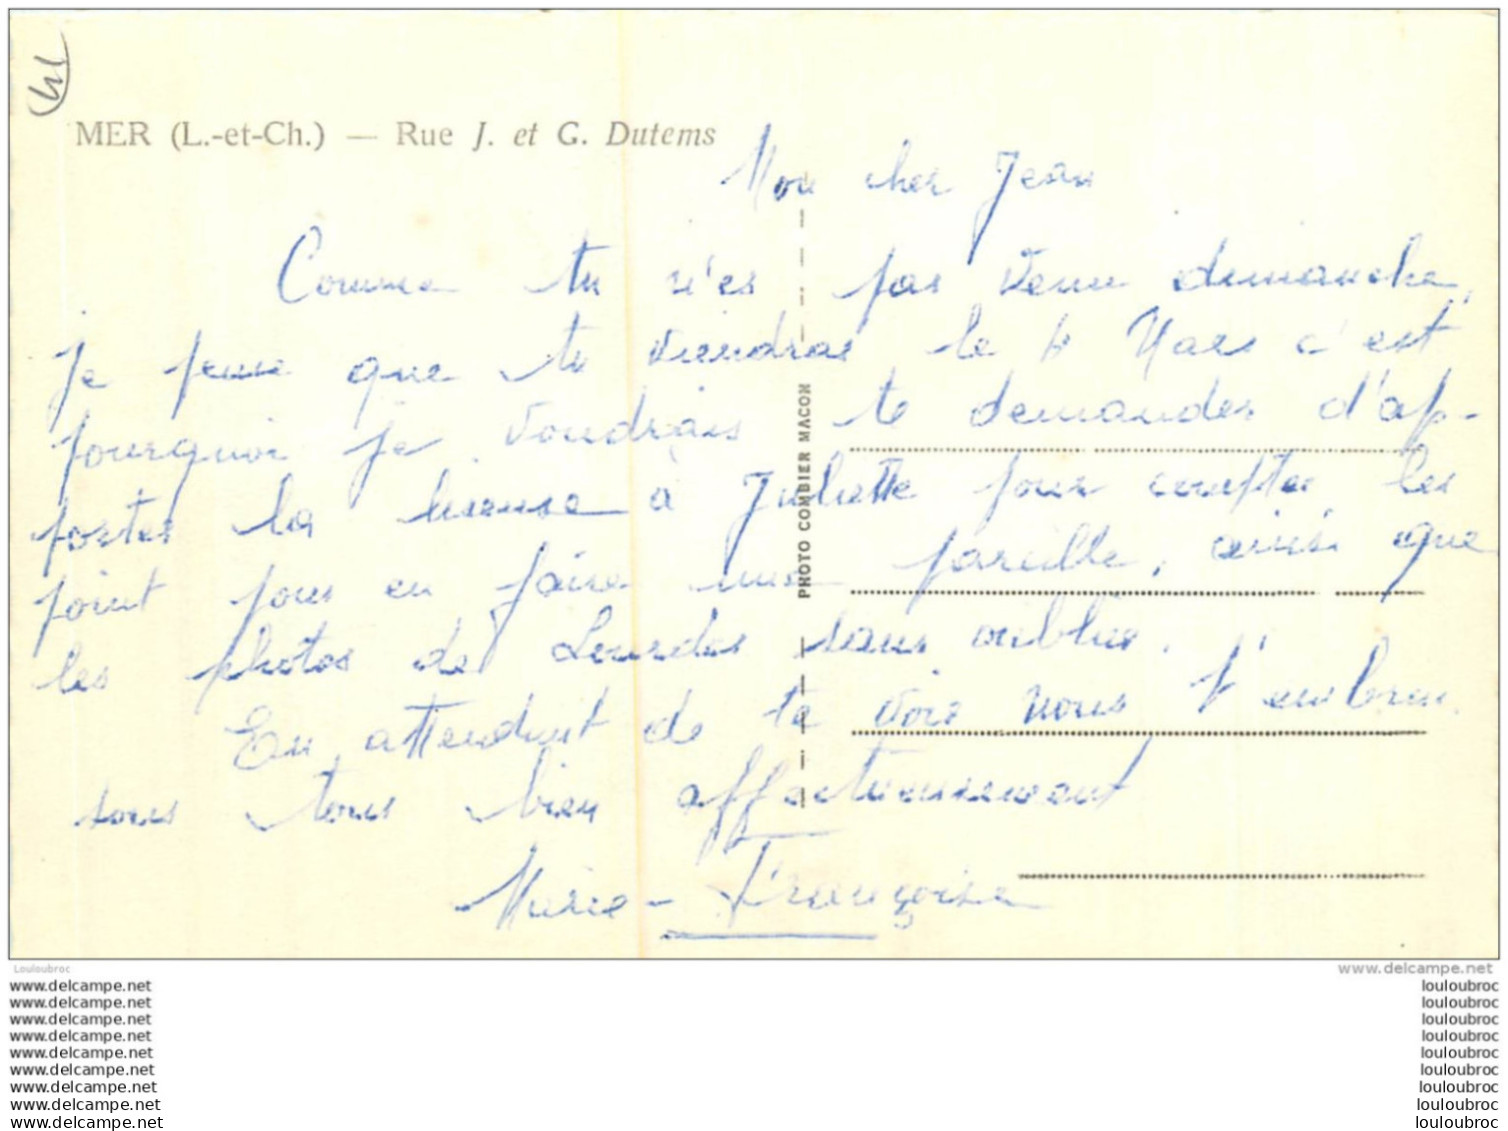 MER (L.-et-Ch.) — Rue J. et G. Dutems
Mon cher Jean
Comme tu n'es pas venu dimanche,
je pense que tu viendras le 6 Mars c'est
pourquoi je voudrais te demander d'ap-
porter la liseuse à Juliette pour compter les
point pour en faire une pareille, ainsi que
les photos de Lourdes sans oublier.
En attendant de te voir nous t'embras
sons tous bien affectueusement
Marie-Françoise
PHOTO COMBIER MACON
Louloubroc
www.delcampe.net
www.delcampe.net louloubroc
www.delcampe.net louloubroc
www.delcampe.net louloubroc
www.delcampe.net louloubroc
www.delcampe.net louloubroc
www.delcampe.net louloubroc
www.delcampe.net louloubroc
www.delcampe.net louloubroc
www.delcampe.net louloubroc